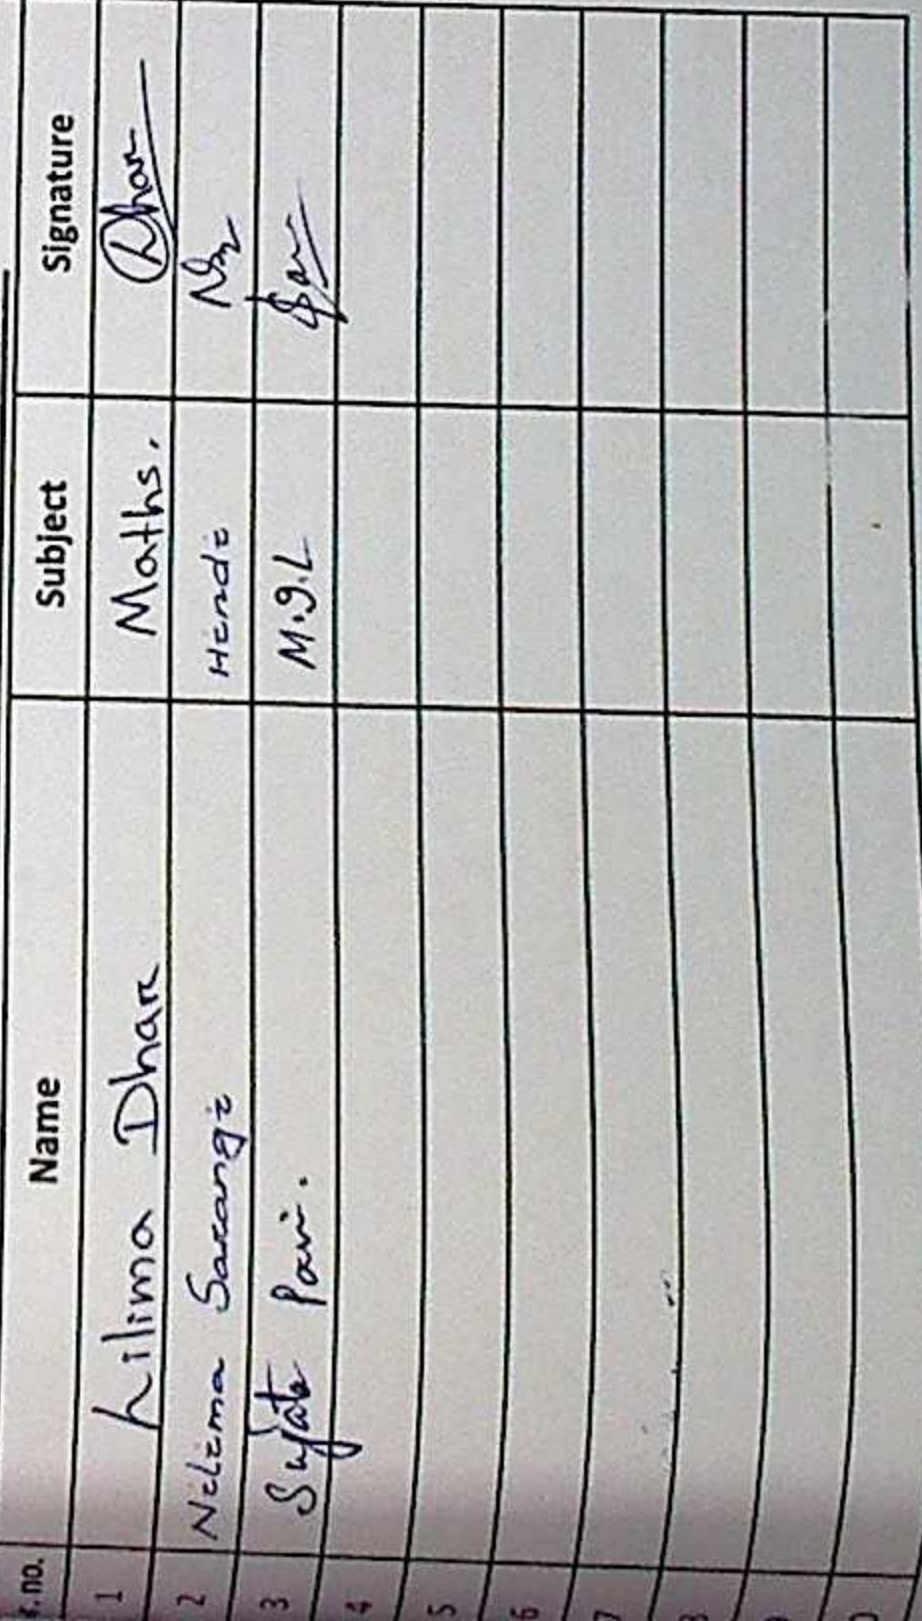 r.no. Name Subject Signature
1 Lilima Dhar Maths. Dhar
2 Nilima Sarangi Hindi
3 Sujata Pani. M.I.L
4
5
6
7
8